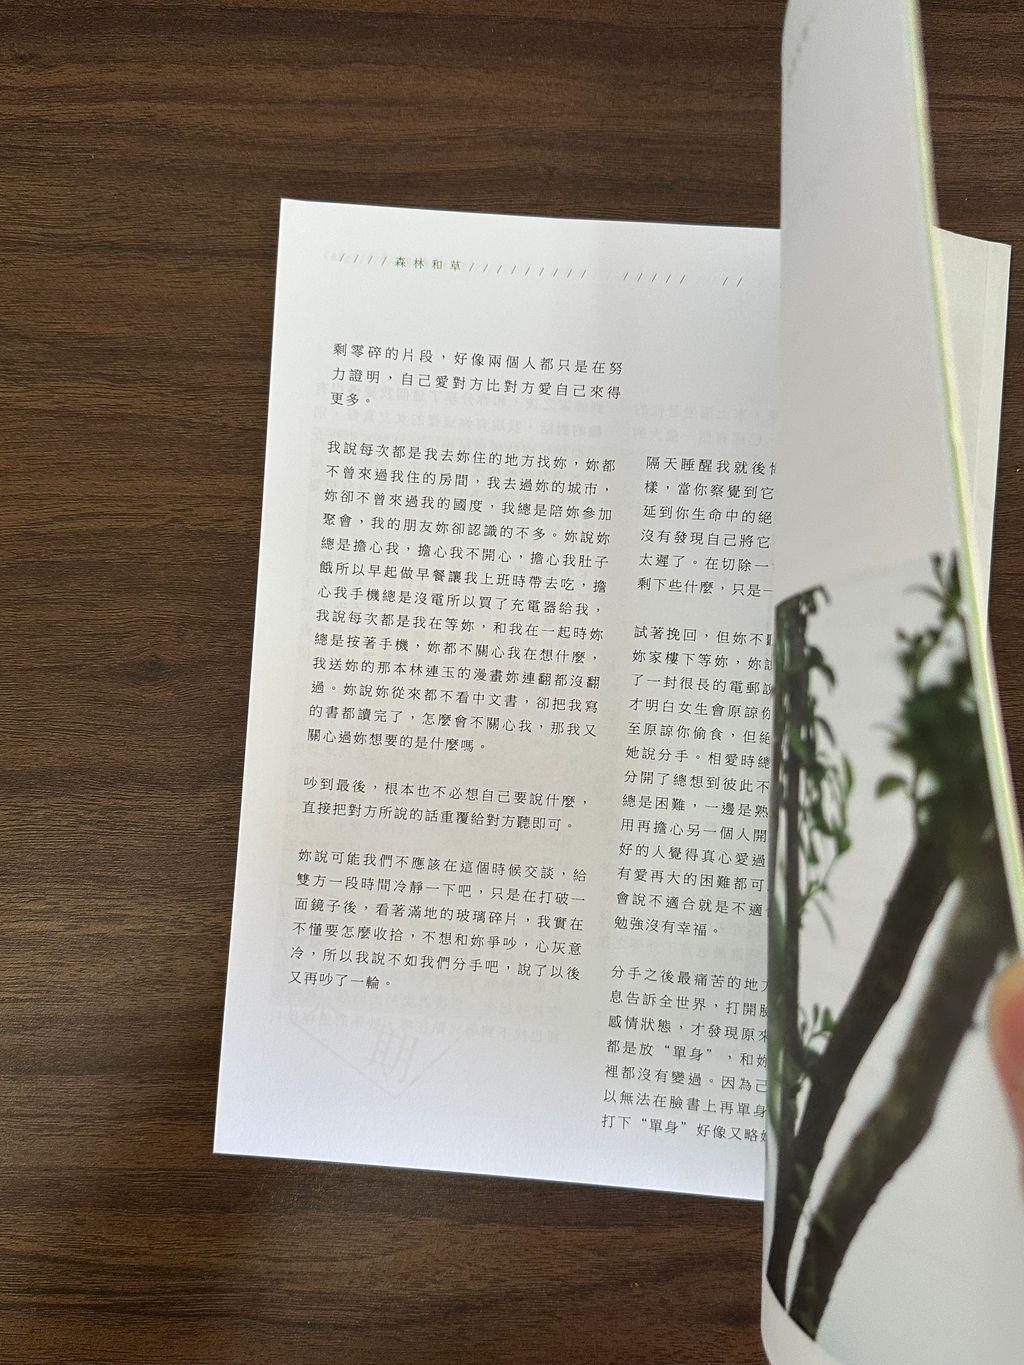 ////森林和草///////// ///// //
剩零碎的片段，好像兩個人都只是在努
力證明，自己愛對方比對方愛自己來得
更多。
我說每次都是我去妳住的地方找妳，妳都
不曾來過我住的房間，我去過妳的城市，
妳卻不曾來過我的國度，我總是陪妳參加
聚會，我的朋友妳卻認識的不多。妳說妳
總是擔心我，擔心我不開心，擔心我肚子
餓所以早起做早餐讓我上班時帶去吃，擔
心我手機總是沒電所以買了充電器給我，
我說每次都是我在等妳，和我在一起時妳
總是按著手機，妳都不關心我在想什麼，
我送妳的那本林連玉的漫畫妳連翻都沒翻
過。妳說妳從來都不看中文書，卻把我寫
的書都讀完了，怎麼會不關心我，那我又
關心過妳想要的是什麼嗎。
吵到最後，根本也不必想自己要說什麼，
直接把對方所說的話重覆給對方聽即可。
妳說可能我們不應該在這個時候交談，給
雙方一段時間冷靜一下吧，只是在打破一
面鏡子後，看著滿地的玻璃碎片，我實在
不懂要怎麼收拾，不想和妳爭吵，心灰意
冷，所以我說不如我們分手吧，說了以後
又再吵了一輪。
隔天睡醒我就後
樣，當你察覺到它
延到你生命中的絕
沒有發現自己將它
太遲了。在切除一
剩下些什麼，只是一
試著挽回，但妳不
妳家樓下等妳，妳
了一封很長的電郵
才明白女生會原諒你
至原諒你偷食，但絕
她說分手。相愛時總
分開了總想到彼此不
總是困難，一邊是熟
用再擔心另一個人開
好的人覺得真心愛過
有愛再大的困難都可
會說不適合就是不適
勉強沒有幸福。
分手之後最痛苦的地
息告訴全世界，打開
感情狀態，才發現原來
都是放“單身”，和妳
裡都沒有變過。因為己
以無法在臉書上再單身
打下“單身”好像又略